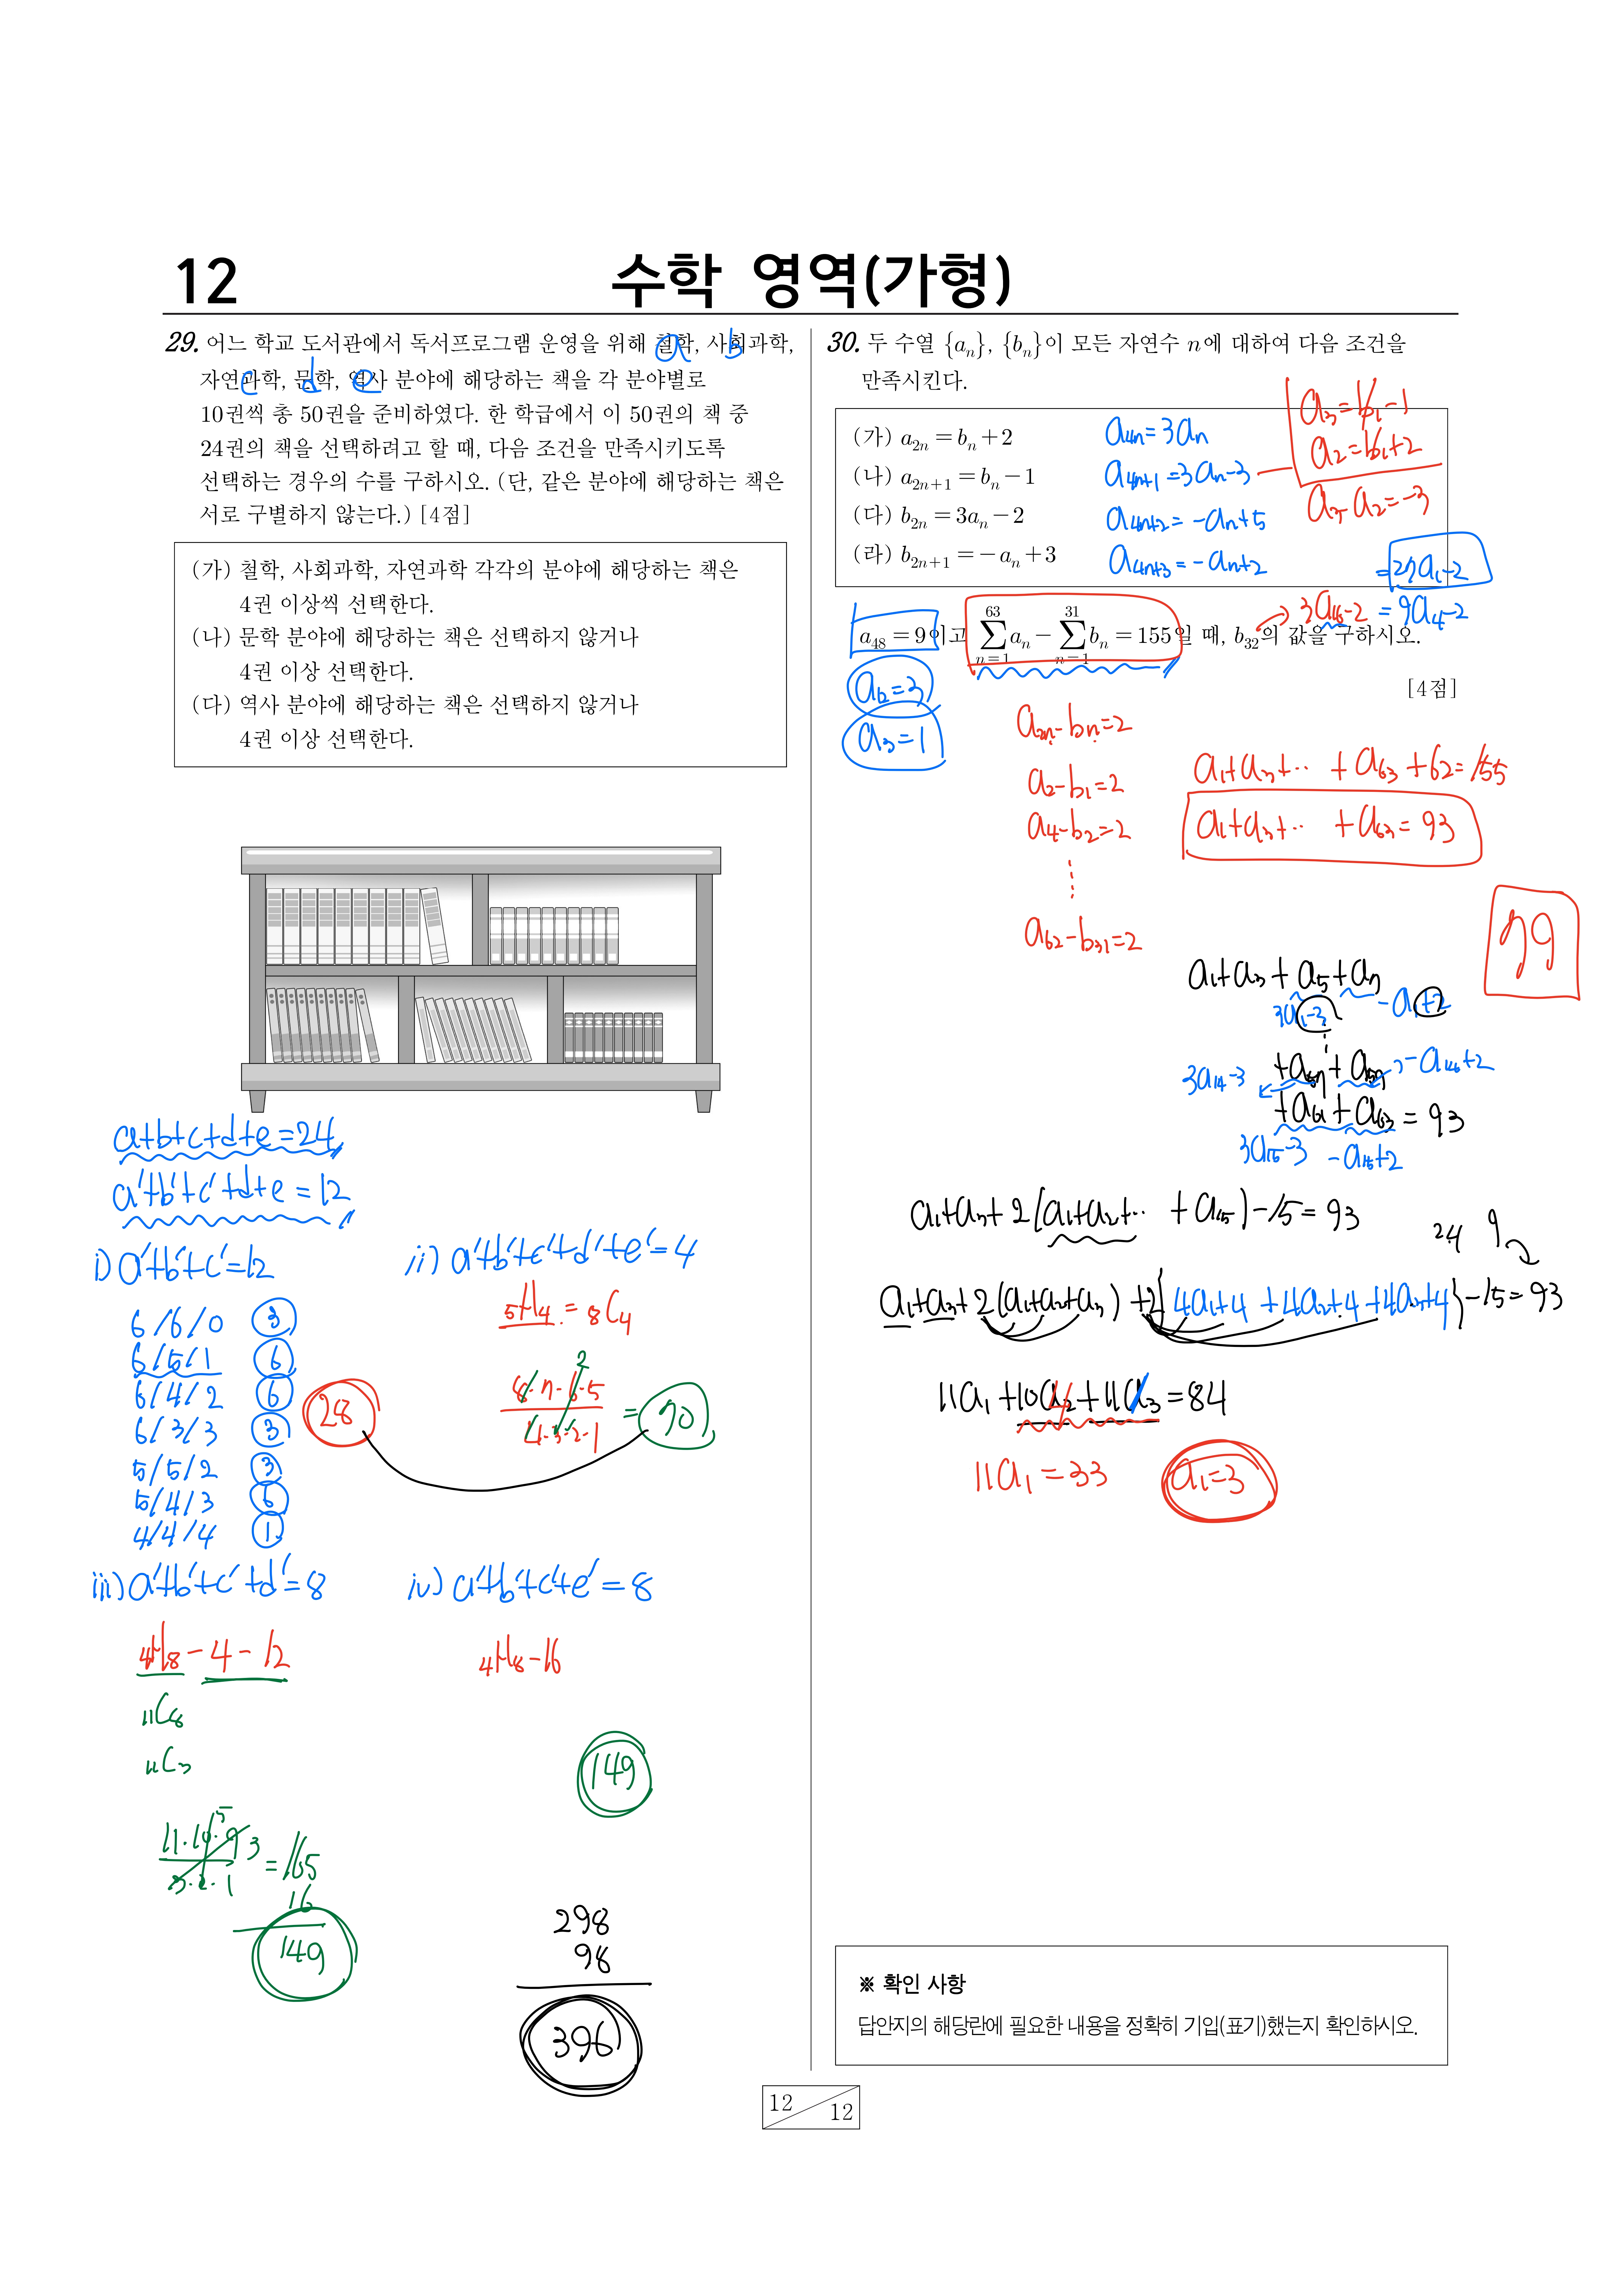 12
수학 영역(가형)
29. 어느 학교 도서관에서 독서프로그램 운영을 위해 철학, 사회과학,
자연과학, 문학, 역사 분야에 해당하는 책을 각 분야별로
10권씩 총 50권을 준비하였다. 한 학급에서 이 50권의 책 중
24권의 책을 선택하려고 할 때, 다음 조건을 만족시키도록
선택하는 경우의 수를 구하시오. (단, 같은 분야에 해당하는 책은
서로 구별하지 않는다.) [4점]
a b
c d e
(가) 철학, 사회과학, 자연과학 각각의 분야에 해당하는 책은
4권 이상씩 선택한다.
(나) 문학 분야에 해당하는 책은 선택하지 않거나
4권 이상 선택한다.
(다) 역사 분야에 해당하는 책은 선택하지 않거나
4권 이상 선택한다.
a+b+c+d+e=24
a'+b'+c'+d+e=12
i) a'+b'+c'=12
6/6/0 3
6/5/1 6
6/4/2 6
6/3/3 3
5/5/2 3
5/4/3 6
4/4/4 1
28
ii) a'+b'+c'+d'+e'=4
₅H₄ = ₈C₄
8·7·6·5 2
4·3·2·1
= 70
iii) a'+b'+c'+d'=8
₄H₈ - 4 - 12
₁₁C₈
₁₁C₃
11·10·9 5 3
3·2·1
=165
16
149
iv) a'+b'+c'+e'=8
₄H₈-16
149
298
98
396
30. 두 수열 {aₙ}, {bₙ}이 모든 자연수 n에 대하여 다음 조건을
만족시킨다.
(가) a₂ₙ = bₙ + 2
(나) a₂ₙ₊₁ = bₙ − 1
(다) b₂ₙ = 3aₙ − 2
(라) b₂ₙ₊₁ = −aₙ + 3
a₄ₙ=3aₙ
a₄ₙ₊₁=3aₙ-3
a₄ₙ₊₂=-aₙ+5
a₄ₙ₊₃=-aₙ+2
a₃=b₁-1
a₂=b₁+2
a₃-a₂=-3
=27a₁-2
3a₁₆-2 =9a₄-2
a₄₈ = 9이고 ∑(n=1→63) aₙ − ∑(n=1→31) bₙ = 155일 때, b₃₂의 값을 구하시오.
[4점]
a₁₂=3
a₃=1
a₂ₙ-bₙ=2
a₂-b₁=2
a₄-b₂=2
a₆₂-b₃₁=2
a₁+a₃+·· +a₆₃+62=155
a₁+a₃+·· +a₆₃=93
79
a₁+a₃+a₅+a₇
3a₁-3 -a₁+2
3a₁₄-3 -a₁₄+2
+a₆₁+a₆₃=93
3a₁₅-3 -a₁₅+2
a₁+a₃+2(a₁+a₂+·· +a₁₅)-15=93
24 9
a₁+a₃+2(a₁+a₂+a₃)+2{4a₁+4+4a₂+4+4a₃+4}-15=93
11a₁+10a₂+11a₃=84
4 1
11a₁=33 a₁=3
※ 확인 사항
답안지의 해당란에 필요한 내용을 정확히 기입(표기)했는지 확인하시오.
12
12